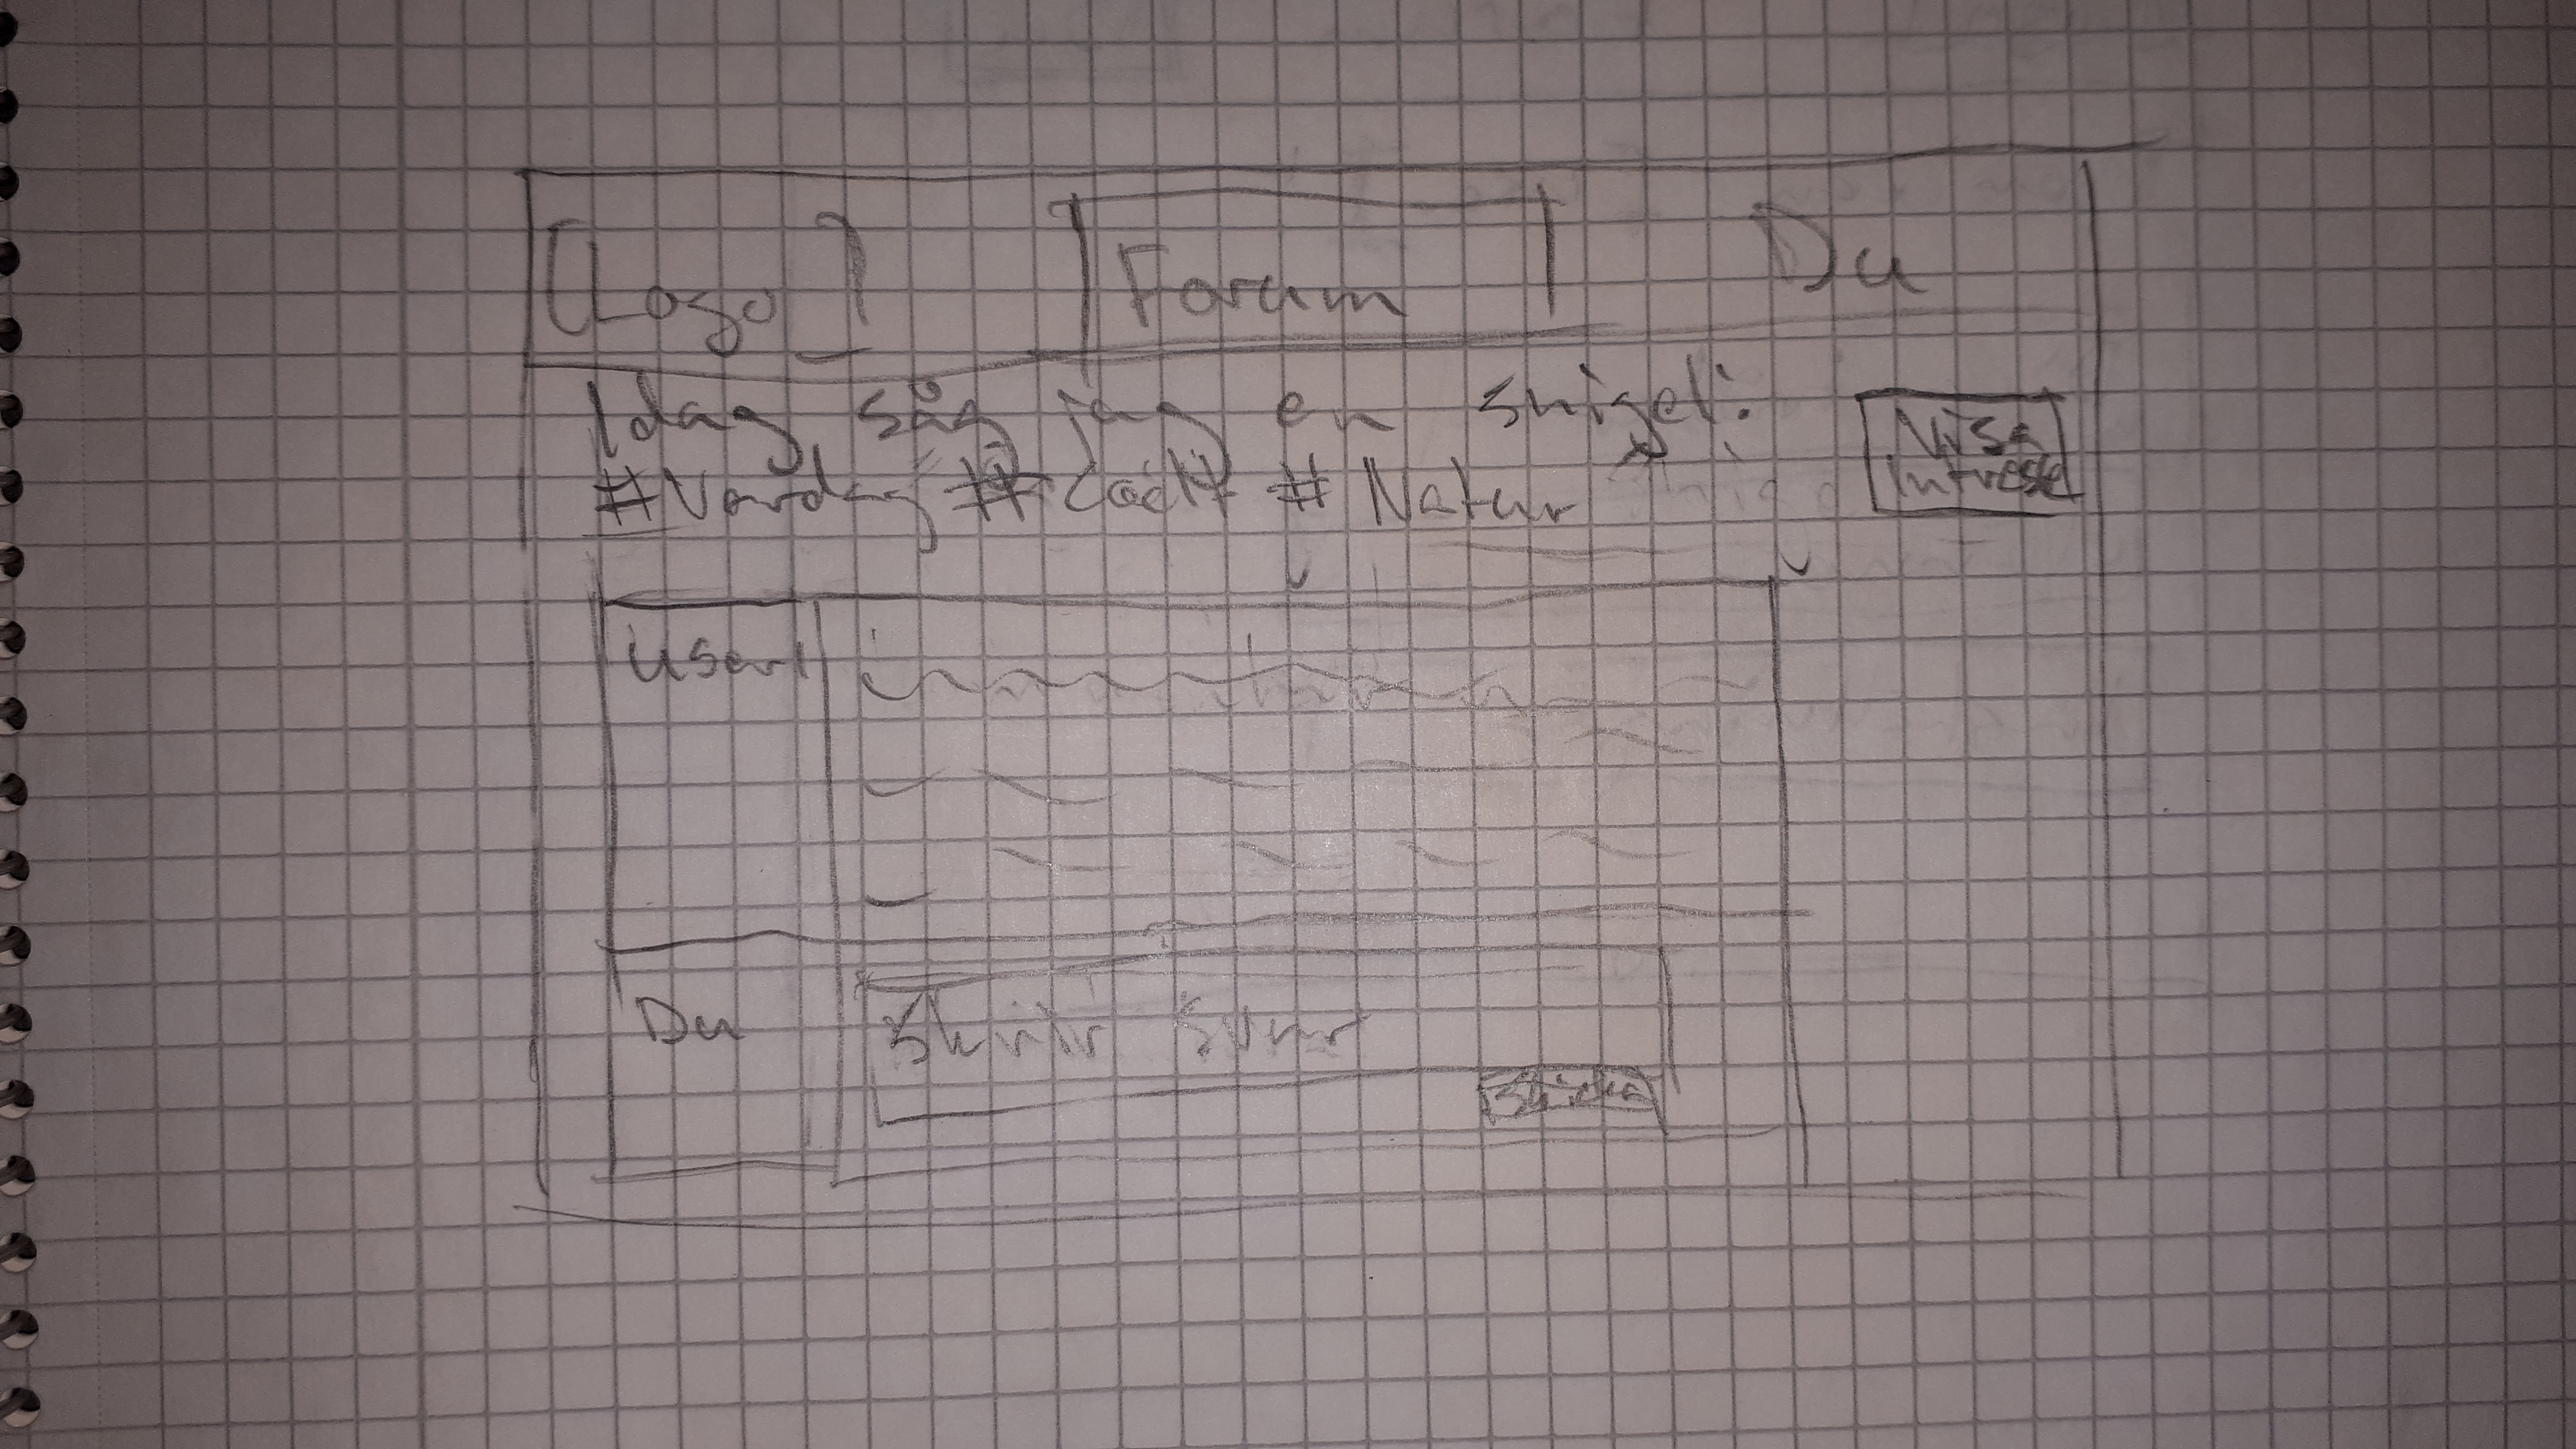 [Logo] Forum Du
Idag såg jag en snigel!
#Vardag #Coolt #Natur
Visa
intresse
User1
Du
Skriv svar
Skicka